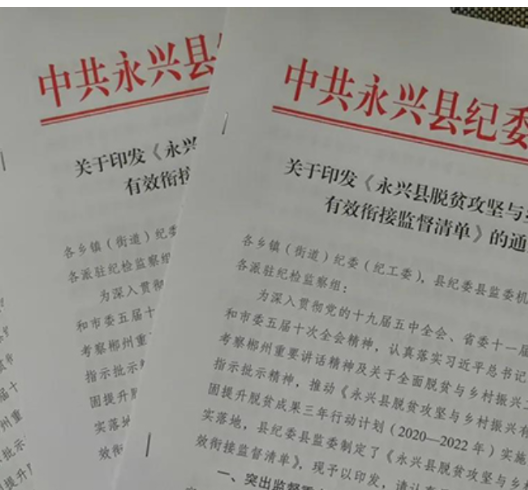 中共永兴县
关于印发《永兴
有效衔接
各乡镇（街道）纪委
各派驻纪检监察组
为深入贯彻
和市委五届十
考察郴州重
指示批示精
固提升脱贫
实落地
效衔
中共永兴县纪委
关于印发《永兴县脱贫攻坚与
有效衔接监督清单》的通
各乡镇（街道）纪委（纪工委），县纪委县监委机
各派驻纪检监察组：
为深入贯彻党的十九届五中全会、省委十一届
和市委五届十次全会精神，认真落实习近平总书记
考察郴州重要讲话精神及关于全面脱贫与乡村振兴
指示批示精神，推动《永兴县脱贫攻坚与乡村振兴有
固提升脱贫成果三年行动计划（2020—2022年）实施
实落地，县纪委县监委制定了《永兴县脱贫攻坚与
效衔接监督清单》，现予以印发，请认真
一、突出监督重